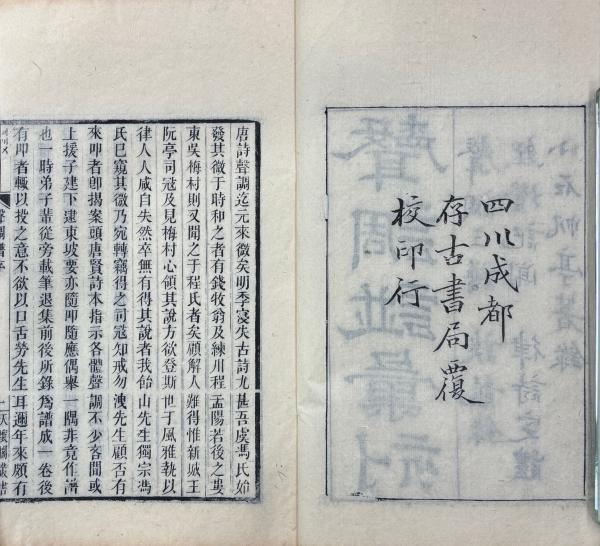 四川成都
存古書局覆
校印行
唐詩聲調迄元來微矣明季寖失古詩尤甚吾虞馮氏始
發其微于時和之者有錢牧翁及練川程孟陽若後之婁
東吳梅村則又聞之于程氏者矣顧解人難得惟新城王
阮亭司寇及見梅村心領其說方欲登斯世于風雅執以
律人人咸自失然卒無有得其說者我飴山先生獨宗馮
氏已窺其微乃宛轉竊得之司寇知戒勿洩先生顧否有
來叩者卽揭案頭唐賢詩本指示各體聲調不少吝間或
上援子建下逮東坡要亦隨叩隨應偶舉一隅非竟作譜
也一時弟子輩從旁載筆退集前後所錄爲譜成一卷後
有叩者輒以投之意不欲以口舌勞先生耳邇年來頗有